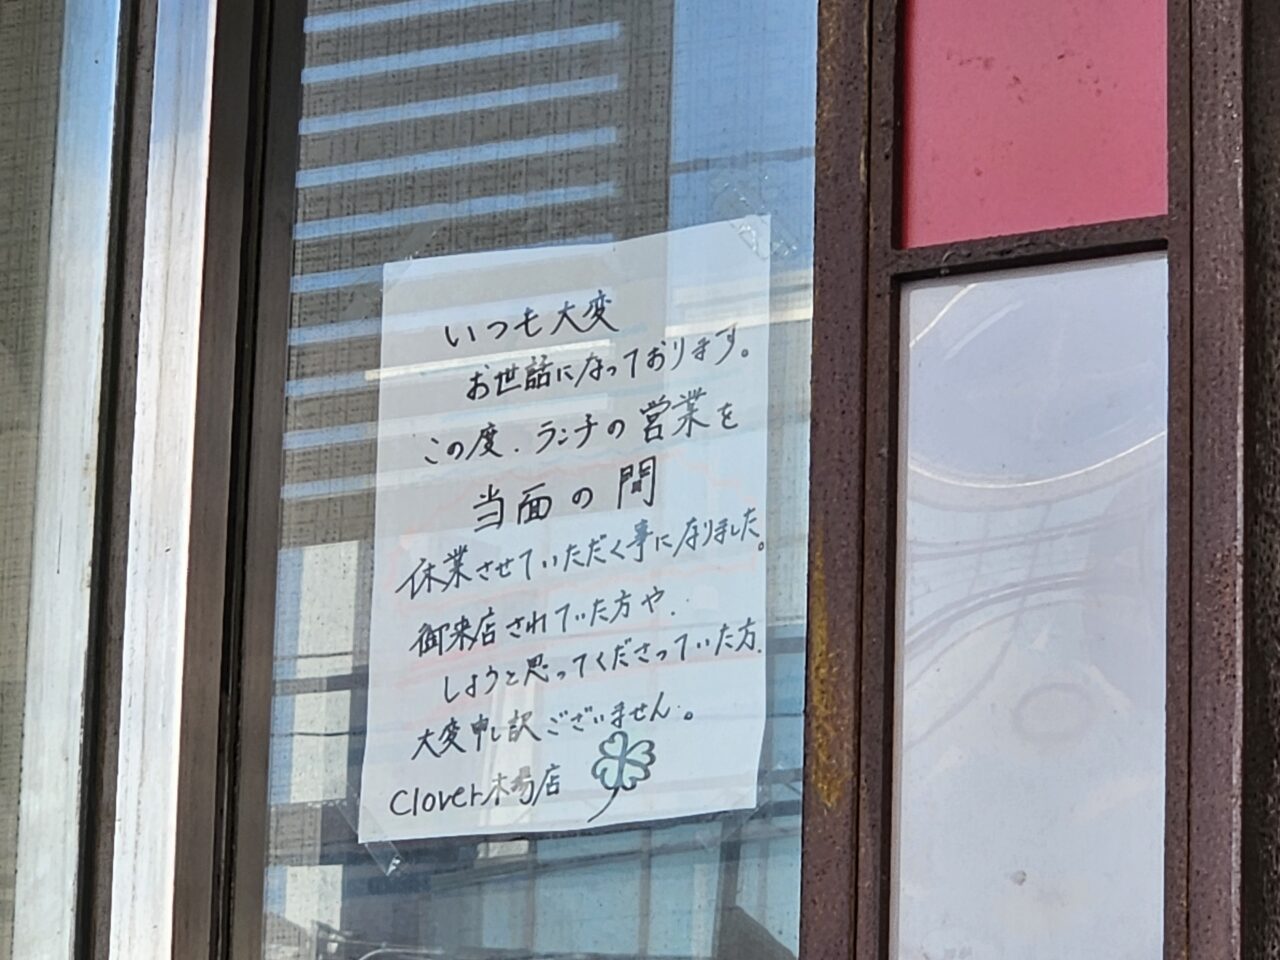 いつも大変
お世話になっております。
この度、ランチの営業を
当面の間
休業させていただく事になりました。
御来店されていた方や、
しようと思ってくださっていた方、
大変申し訳ございません。
Clover木場店